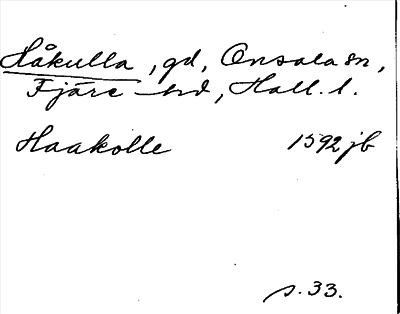 Håkulla, gd, Onsala sn,
Fjäre hd, Hall. l.
Haakolle 1592 jb
s. 33.